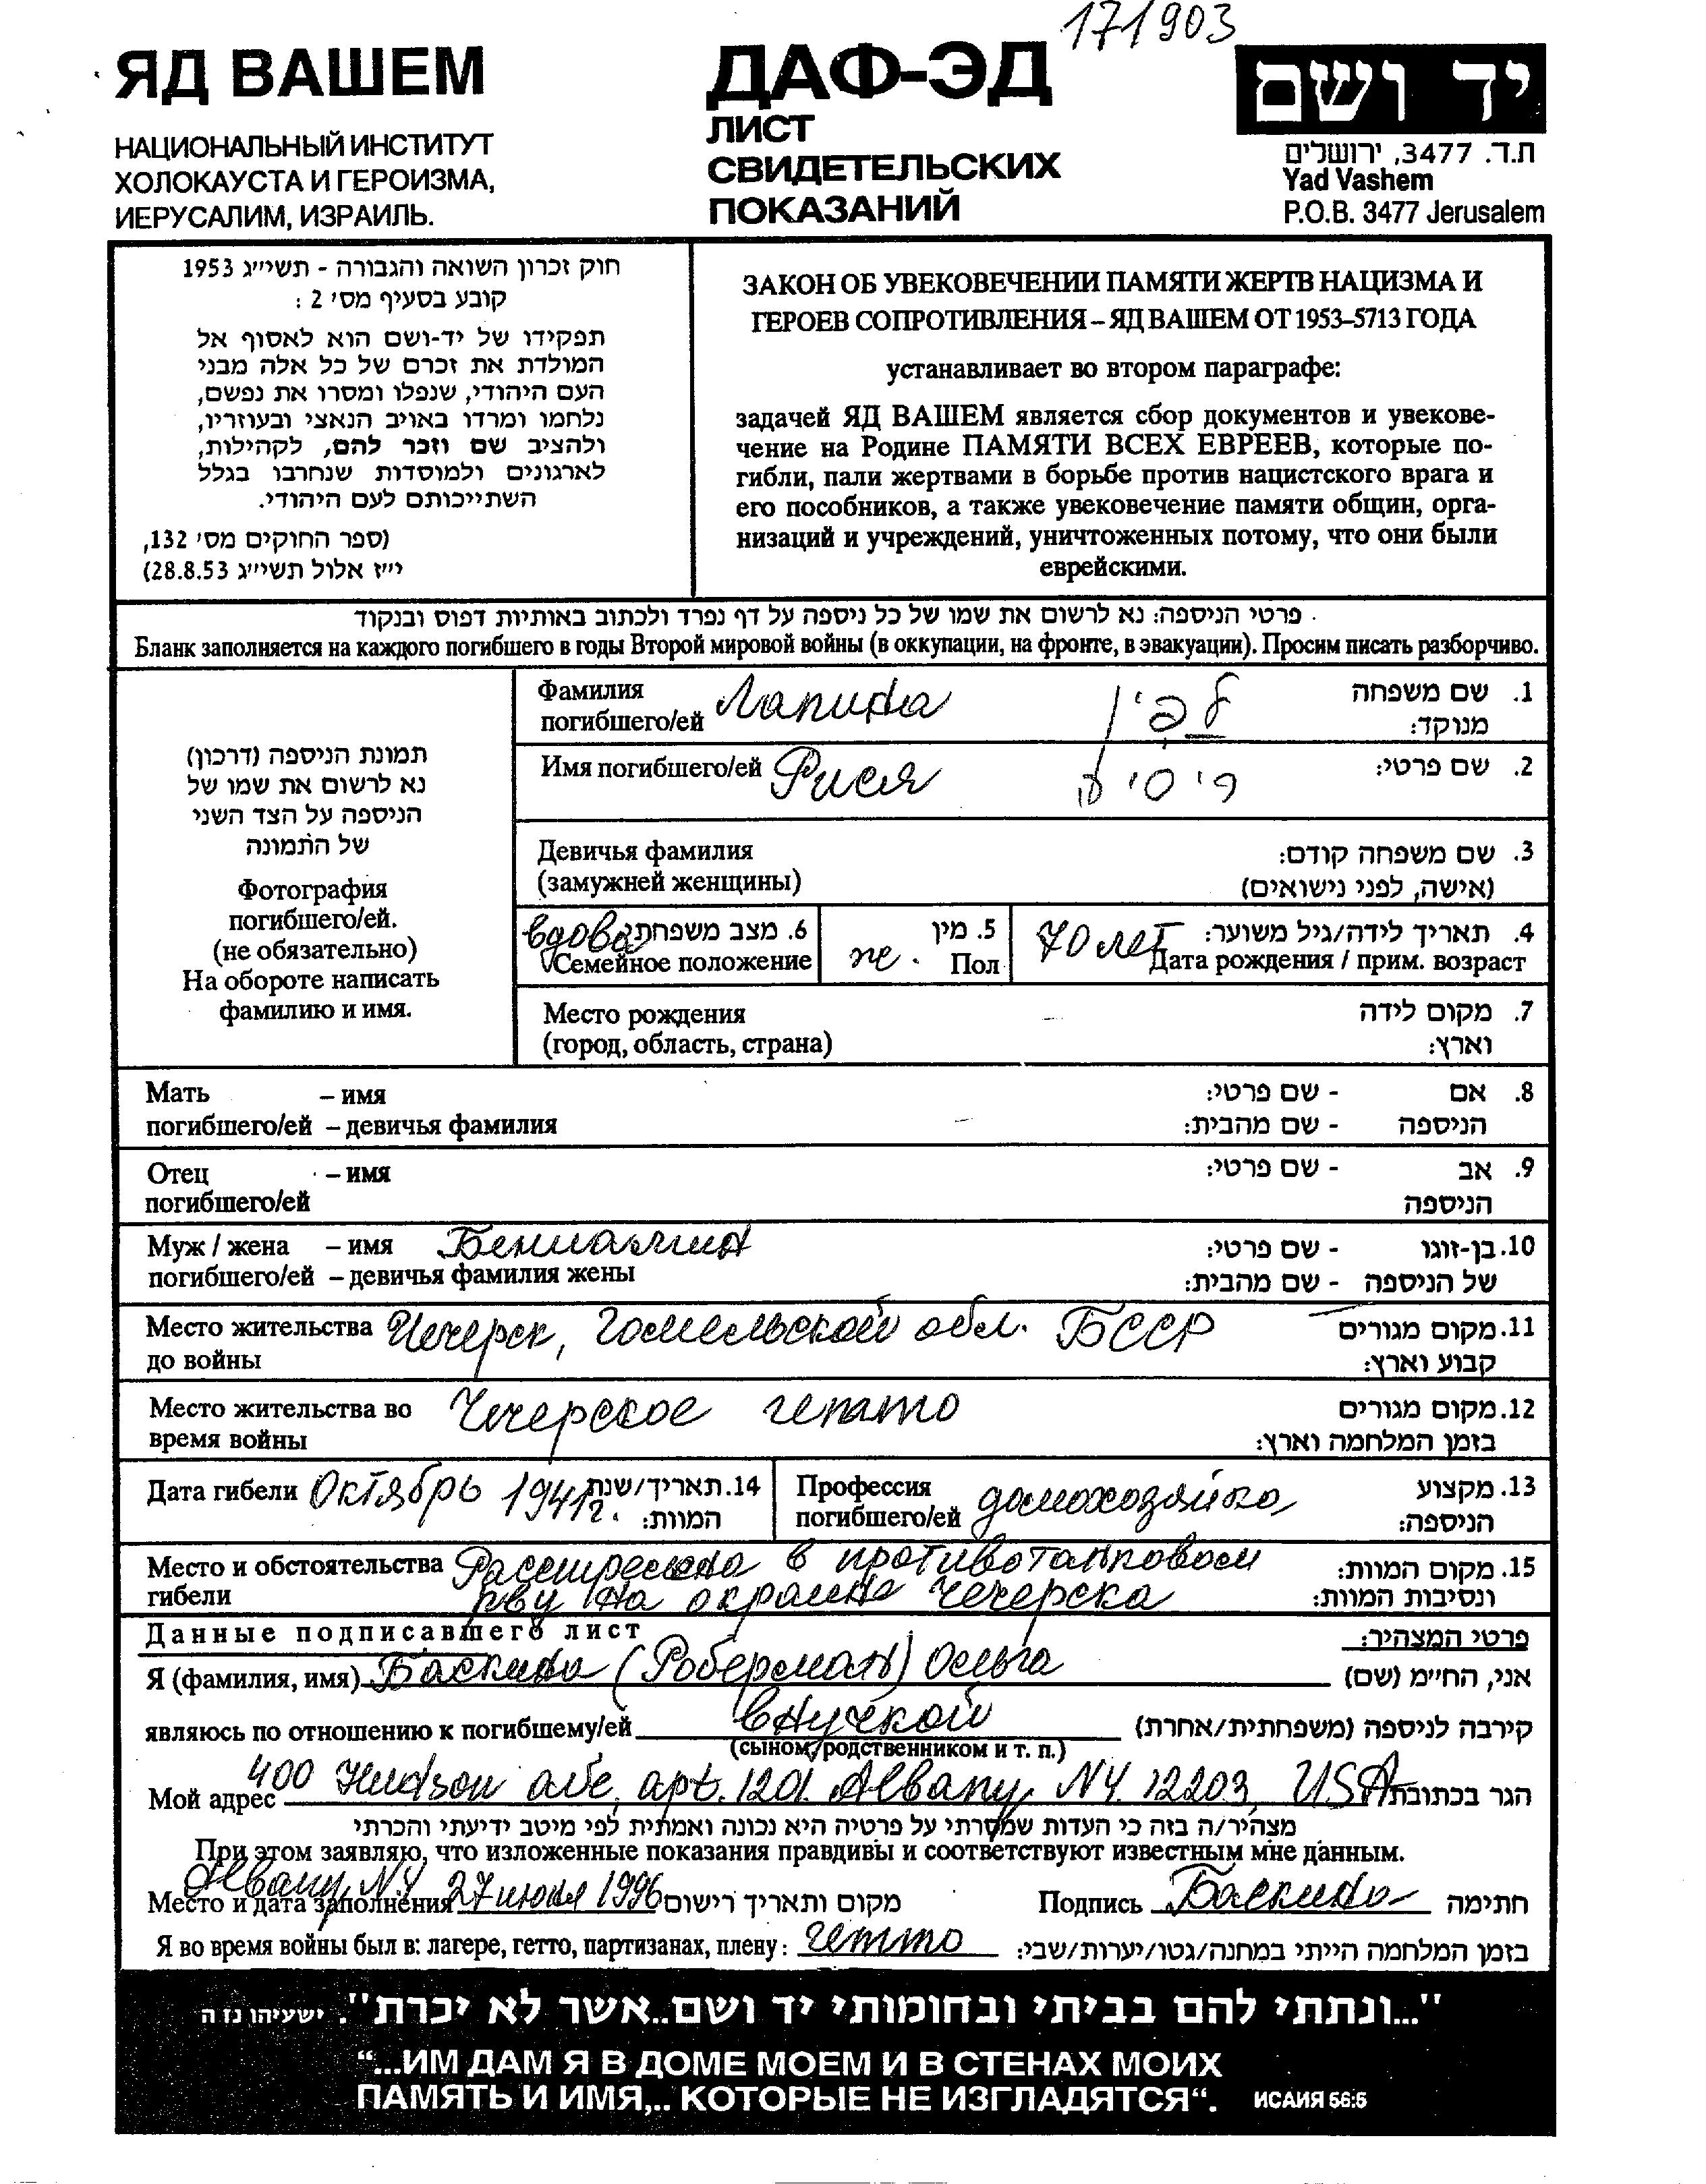 171903
ЯД ВАШЕМ
НАЦИОНАЛЬНЫЙ ИНСТИТУТ
ХОЛОКАУСТА И ГЕРОИЗМА,
ИЕРУСАЛИМ, ИЗРАИЛЬ.
ДАФ-ЭД
ЛИСТ
СВИДЕТЕЛЬСКИХ
ПОКАЗАНИЙ
יד ושם
ת.ד. 3477, ירושלים
Yad Vashem
P.O.B. 3477 Jerusalem
חוק זכרון השואה והגבורה - תשי״ג 1953
קובע בסעיף מס׳ 2 :
תפקידו של יד-ושם הוא לאסוף אל
המולדת את זכרם של כל אלה מבני
העם היהודי, שנפלו ומסרו את נפשם,
נלחמו ומרדו באויב הנאצי ובעוזריו,
ולהציב שם וזכר להם, לקהילות,
לארגונים ולמוסדות שנחרבו בגלל
השתייכותם לעם היהודי.
(ספר החוקים מס׳ 132,
י״ז אלול תשי״ג 28.8.53)
ЗАКОН ОБ УВЕКОВЕЧЕНИИ ПАМЯТИ ЖЕРТВ НАЦИЗМА И
ГЕРОЕВ СОПРОТИВЛЕНИЯ – ЯД ВАШЕМ ОТ 1953–5713 ГОДА
устанавливает во втором параграфе:
задачей ЯД ВАШЕМ является сбор документов и увекове-
чение на Родине ПАМЯТИ ВСЕХ ЕВРЕЕВ, которые по-
гибли, пали жертвами в борьбе против нацистского врага и
его пособников, а также увековечение памяти общин, орга-
низаций и учреждений, уничтоженных потому, что они были
еврейскими.
פרטי הניספה: נא לרשום את שמו של כל ניספה על דף נפרד ולכתוב באותיות דפוס ובנקוד
Бланк заполняется на каждого погибшего в годы Второй мировой войны (в оккупации, на фронте, в эвакуации). Просим писать разборчиво.
תמונת הניספה (דרכון)
נא לרשום את שמו של
הניספה על הצד השני
של התמונה
Фотография
погибшего/ей.
(не обязательно)
На обороте написать
фамилию и имя.
Фамилия Лапина לפין 1. שם משפחה
погибшего/ей מנוקד:
Имя погибшего/ей Рися ריסיה 2. שם פרטי:
Девичья фамилия 3. שם משפחה קודם:
(замужней женщины) (אישה, לפני נישואים)
вдова 6. מצב משפחתי: 5. מין 70 лет 4. תאריך לידה/גיל משוער:
Семейное положение же. Пол Дата рождения / прим. возраст
Место рождения 7. מקום לידה
(город, область, страна) וארץ:
Мать – имя - שם פרטי: 8. אם
погибшего/ей – девичья фамилия - שם מהבית: הניספה
Отец – имя - שם פרטי: 9. אב
погибшего/ей הניספה
Муж / жена – имя Бениамин - שם פרטי: 10. בן-זוגו
погибшего/ей – девичья фамилия жены - שם מהבית: של הניספה
Место жительства Чечерск, Гомельской обл. БССР 11. מקום מגורים
до войны קבוע וארץ:
Место жительства во Чечерское гетто 12. מקום מגורים
время войны בזמן המלחמה וארץ:
Дата гибели Октябрь 1941г. 14. תאריך/שנת המוות:
Профессия домохозяйка 13. מקצוע
погибшего/ей הניספה:
Место и обстоятельства Расстреляна в противотанковом 15. מקום המוות:
гибели рву на окраине Чечерска ונסיבות המוות:
Данные подписавшего лист פרטי המצהיר:
Я (фамилия, имя) Баскина (Роберман) Ольга אני, הח״מ (שם)
являюсь по отношению к погибшему/ей внучкой קירבה לניספה (משפחתית/אחרת)
(сыном, родственником и т. п.)
Мой адрес 400 Hudson ave, apt. 120. Albany NY. 12203, USA הגר בכתובת
מצהיר/ה בזה כי העדות שמסרתי על פרטיה היא נכונה ואמתית לפי מיטב ידיעתי והכרתי
При этом заявляю, что изложенные показания правдивы и соответствуют известным мне данным.
Albany, NY
Место и дата заполнения 27 июня 1996 מקום ותאריך רישום Подпись Баскина חתימה
Я во время войны был в: лагере, гетто, партизанах, плену: гетто בזמן המלחמה הייתי במחנה/גטו/יערות/שבי:
"...ונתתי להם בביתי ובחומותי יד ושם..אשר לא יכרת". ישעיהו נז ה
“...ИМ ДАМ Я В ДОМЕ МОЕМ И В СТЕНАХ МОИХ
ПАМЯТЬ И ИМЯ,.. КОТОРЫЕ НЕ ИЗГЛАДЯТСЯ“. ИСАИЯ 56:5